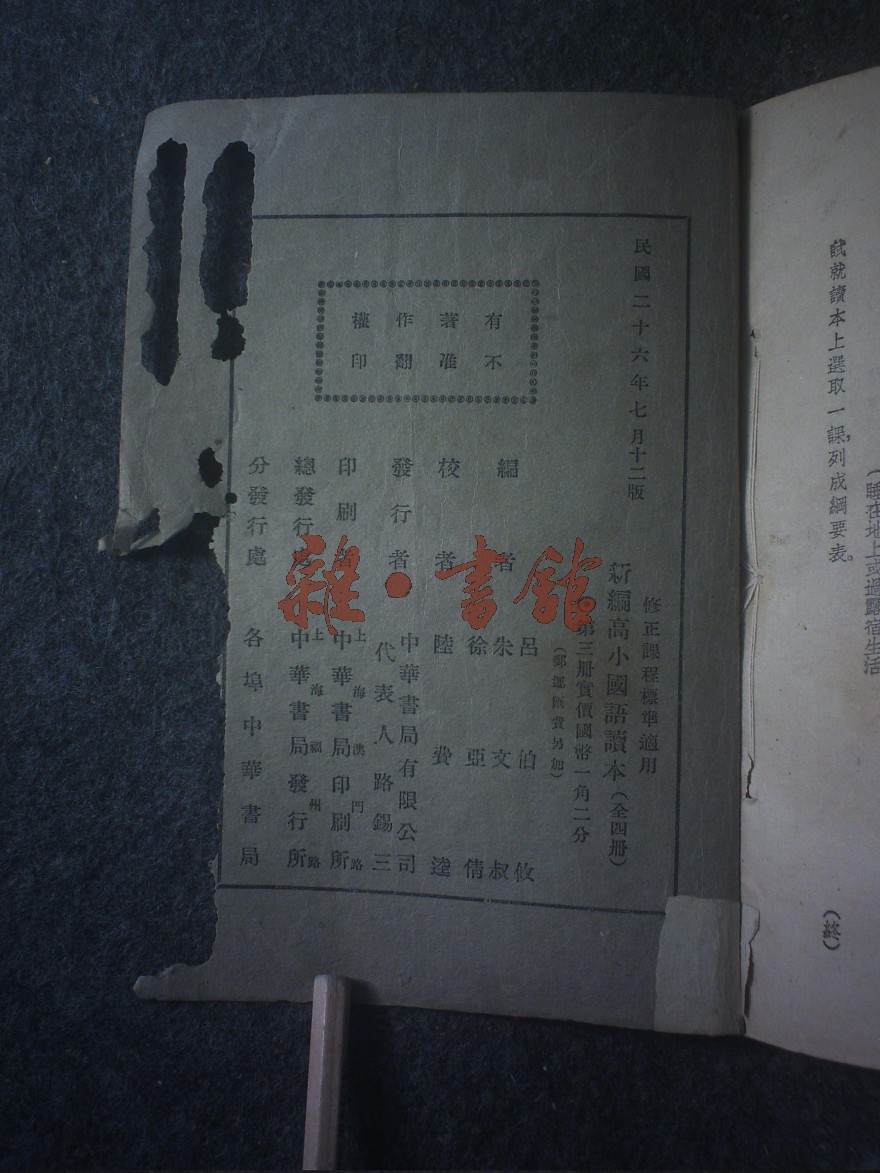 試就讀本上選取一課，列成綱要表。
（睡在地上或過露宿生活
（終）
民國二十六年七月十二版
有著作權
不准翻印
修正課程標準適用
新編高小國語讀本（全四冊）
第三冊實價國幣一角二分
（郵運匯費另加）
編者 呂伯攸
朱文叔
徐亞倩
校者 陸費逵
發行者 中華書局有限公司
代表人路錫三
印刷者 上海澳門路
中華書局印刷所
總發行處 上海福州路
中華書局發行所
分發行處 各埠中華書局
雜·書館